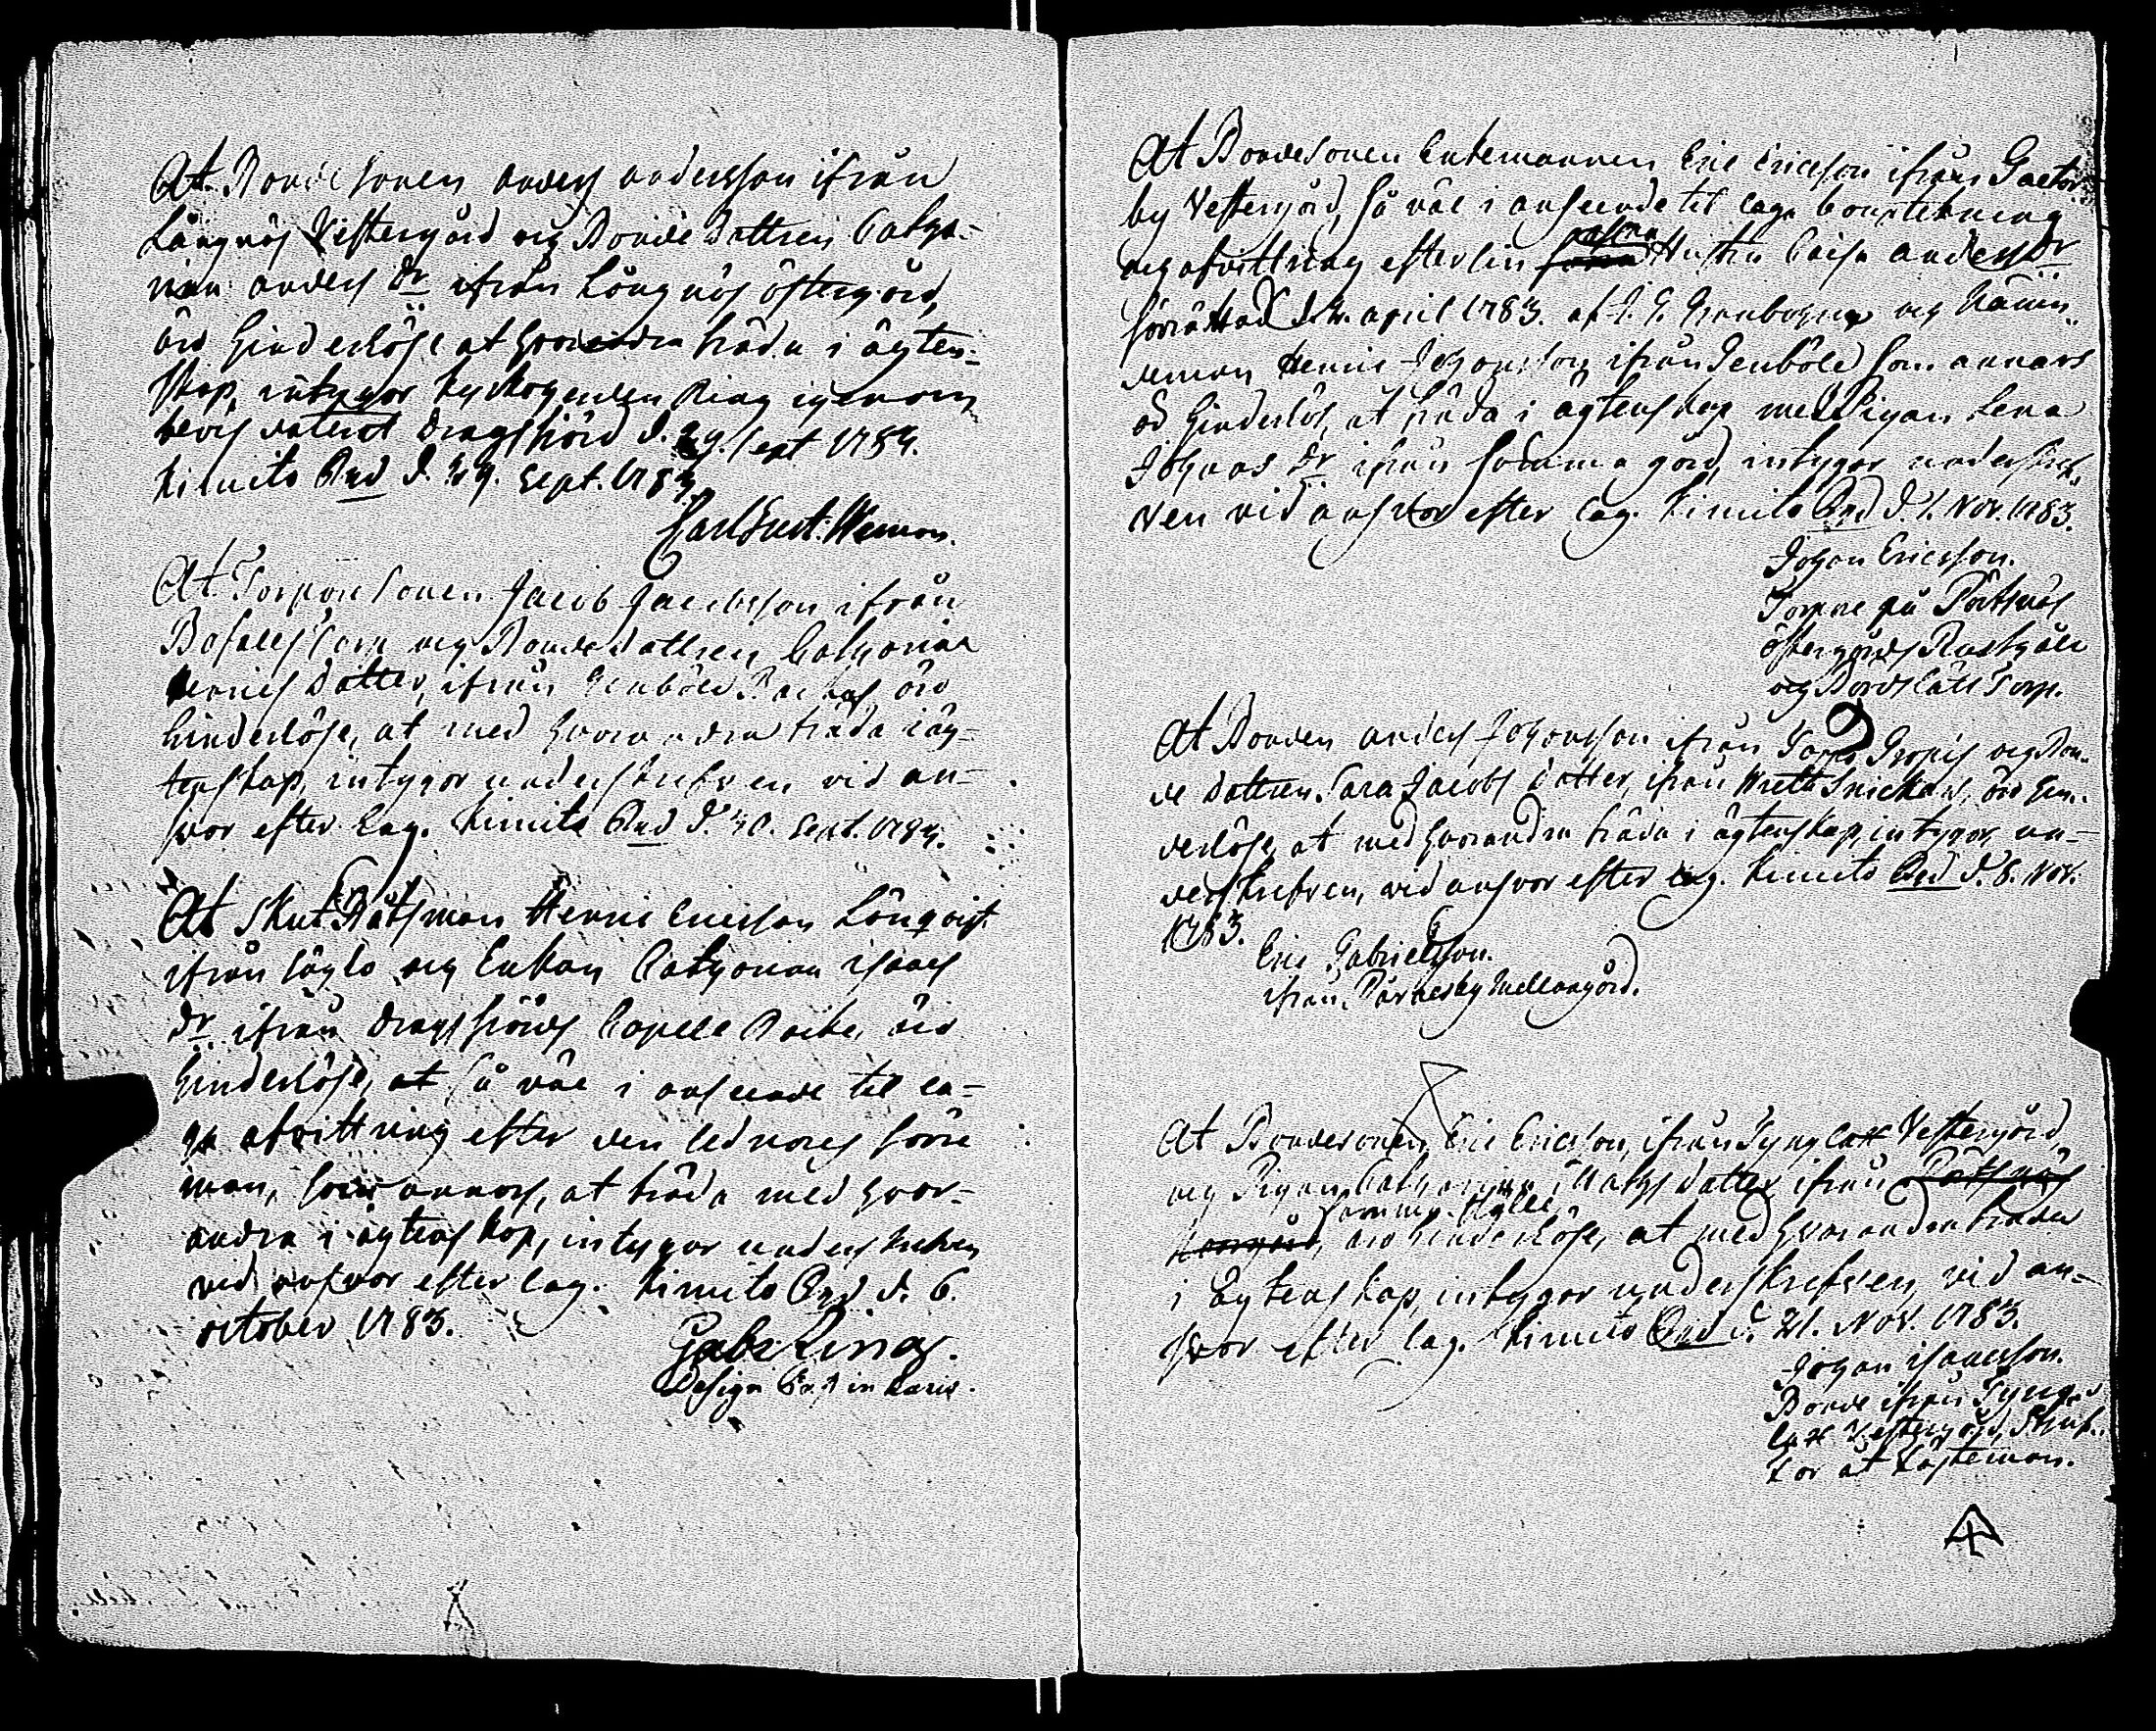 At Bonde sonen anders andersson ifrån
Långnäs Västergård og Bonde dottren Catha-
rina anders dr ifrån Långnäs östergård,
äro hinderlöse at hvarandra träda i ägten-
skap, intygar kyrkoherden Ring igenom
bevis daterat Dragsfjärd d. 29. Sept 1783.
Kimito Prd d. 29. Sept. 1783
Carl Gust: Weman.
At Torpare sonen Jacob Jacobsson ifrån
Böhlestorp og Bonde dottren Catharina
Henrics dotter, ifrån Genböle Backas äro
hinderlöse, at med hvarandra träda i äg-
tenskap, intygar underskrefven vid an-
svar efter Lag. Kimito Prd d. 30. Sept. 1783.
At Skut Båtsman Henric Ericsson Lönqvist
ifrån Söglo og Enkan Catharina isaacs
dr ifrån Dragsfjärds Capells Backe, äro
hinderlöse, at så väl i anseende til la-
ga afvittring efter den lednares förre
man, som annars, at träda med hvar-
andra i ägtenskap, intygar underskrefven
vid ansvar efter lag. Kimito Prd d. 6.
october 1783.
Gabr Ring.
Design. Past in Karis.
At Bondesonen Enkemannen Eric Ericsson ifrån Galtar-
by Vestergård, så väl i anseende til laga bouptekning
og afvittring efter sin afledna Hustru Caisa anders dr
förrättad d. 4. april 1783. af J. G. Granbohm og Näm-
deman Henric Johansson ifrån Genböle som annars
är hinderlös, at träda i ägtenskap med Pigan Lena
Johans dr ifrån samma gård, intygar underskref-
ven vid ansvar efter lag. Kimito Prd d. 1. Nov. 1783.
Johan Ericsson.
Torpare på Pörtsnäs
östergårds Rusthåll
og Nordslätt Torp.
At Bonden anders Johansson ifrån Torpo og Bon-
de dottren Sara Jacobs dotter, ifrån Wreta Snickars, äro hin-
derlöse, at med hvarandra träda i ägtenskap, intygar, un-
derskrefven, vid ansvar efter lag. Kimito Prd d. 8. Nov.
1783.
Eric Gabrielsson.
ifrån Pärnesby Mellangård.
At Bondesonen Eric Ericsson, ifrån Tynglax Vestergård,
og Pigan Catharina Matts dotter ifrån Pörtsnäs
samma ställe
äro hinderlöse, at med hvarandra träda
i ägtenskap, intygar underskrefven, vid an-
svar efter lag. Kimito Prd d. 21. Nov. 1783.
Johan isaacsson.
Bonde ifrån Tyng-
lax Vestergård,
för at fästeman.